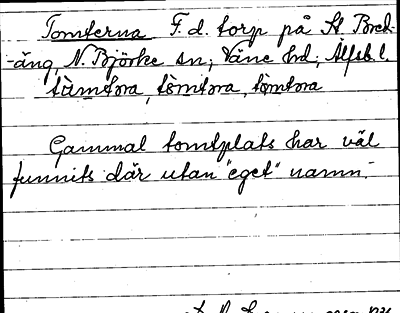 Tomterna F. d. torp på St. Bred-
-äng N. Björke sn; Väne hd; Älfsb. l.
tåmtəra, tömtəra, tömtəra
Gammal tomtplats har väl
funnits där utan "eget" namn.